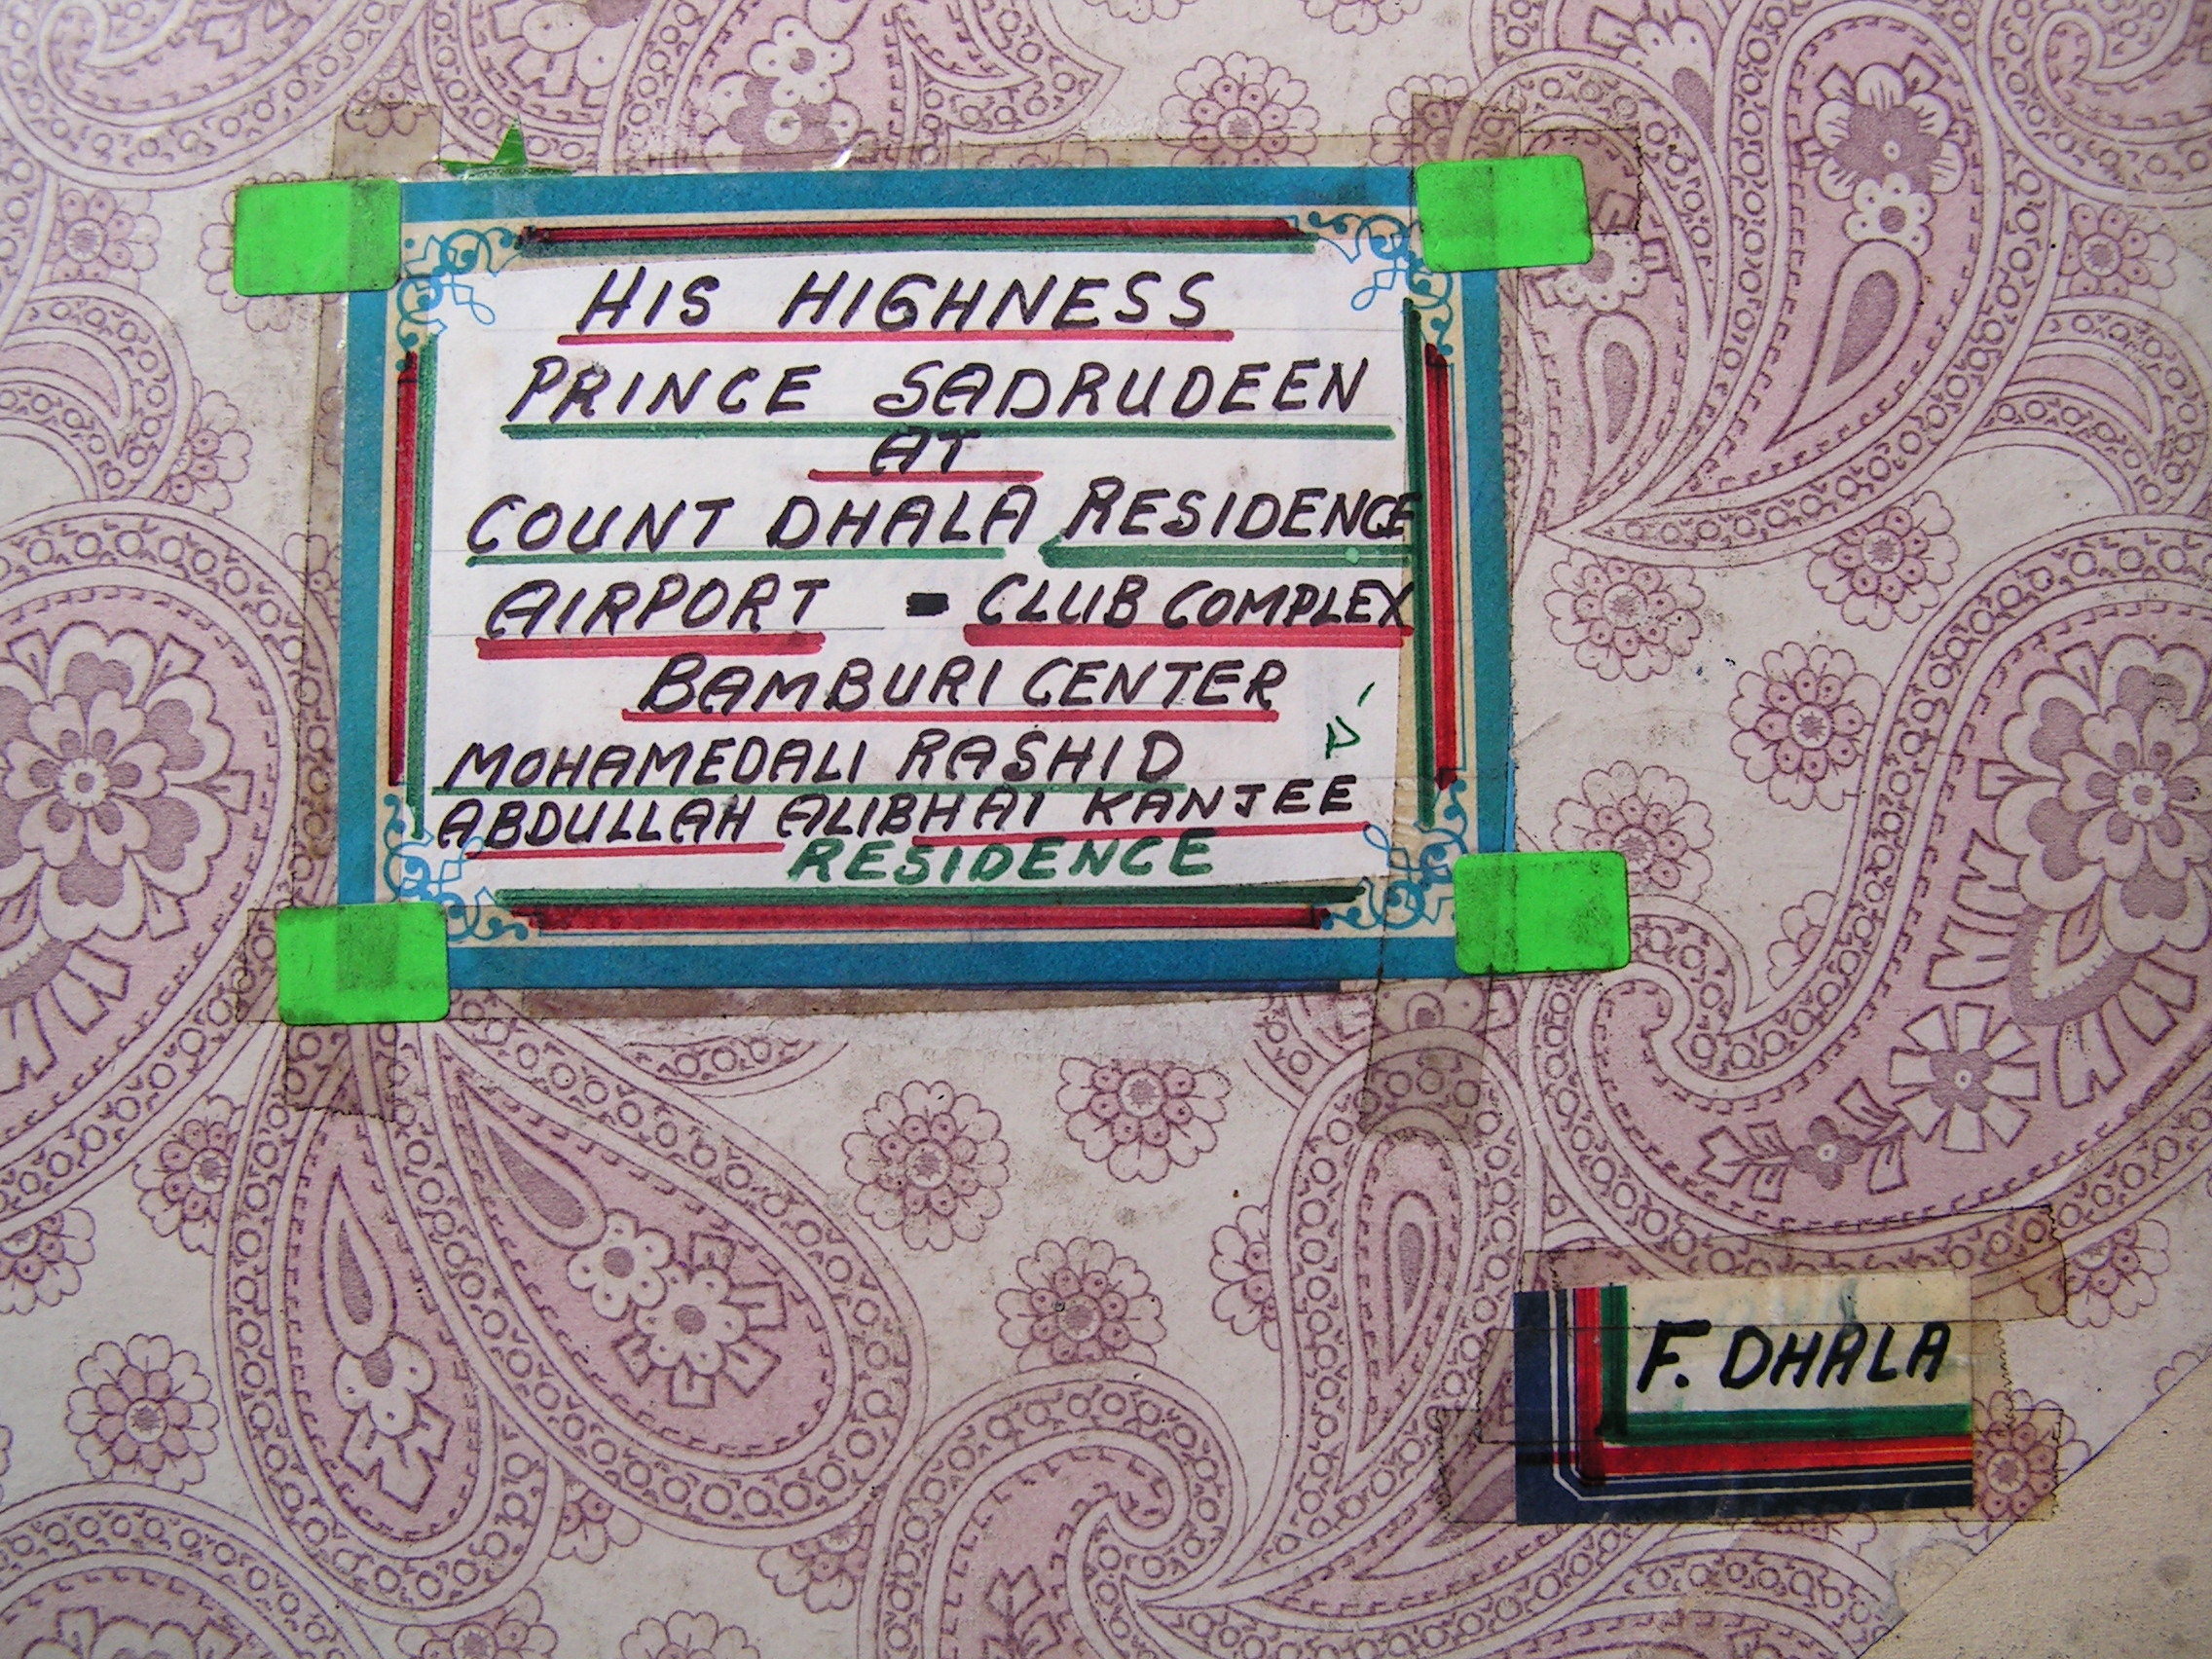 HIS HIGHNESS
PRINCE SADRUDEEN
AT
COUNT DHALA RESIDENCE
AIRPORT - CLUB COMPLEX
BAMBURI CENTER
MOHAMEDALI RASHID
ABDULLAH ALIBHAI KANJEE
RESIDENCE
F. DHALA